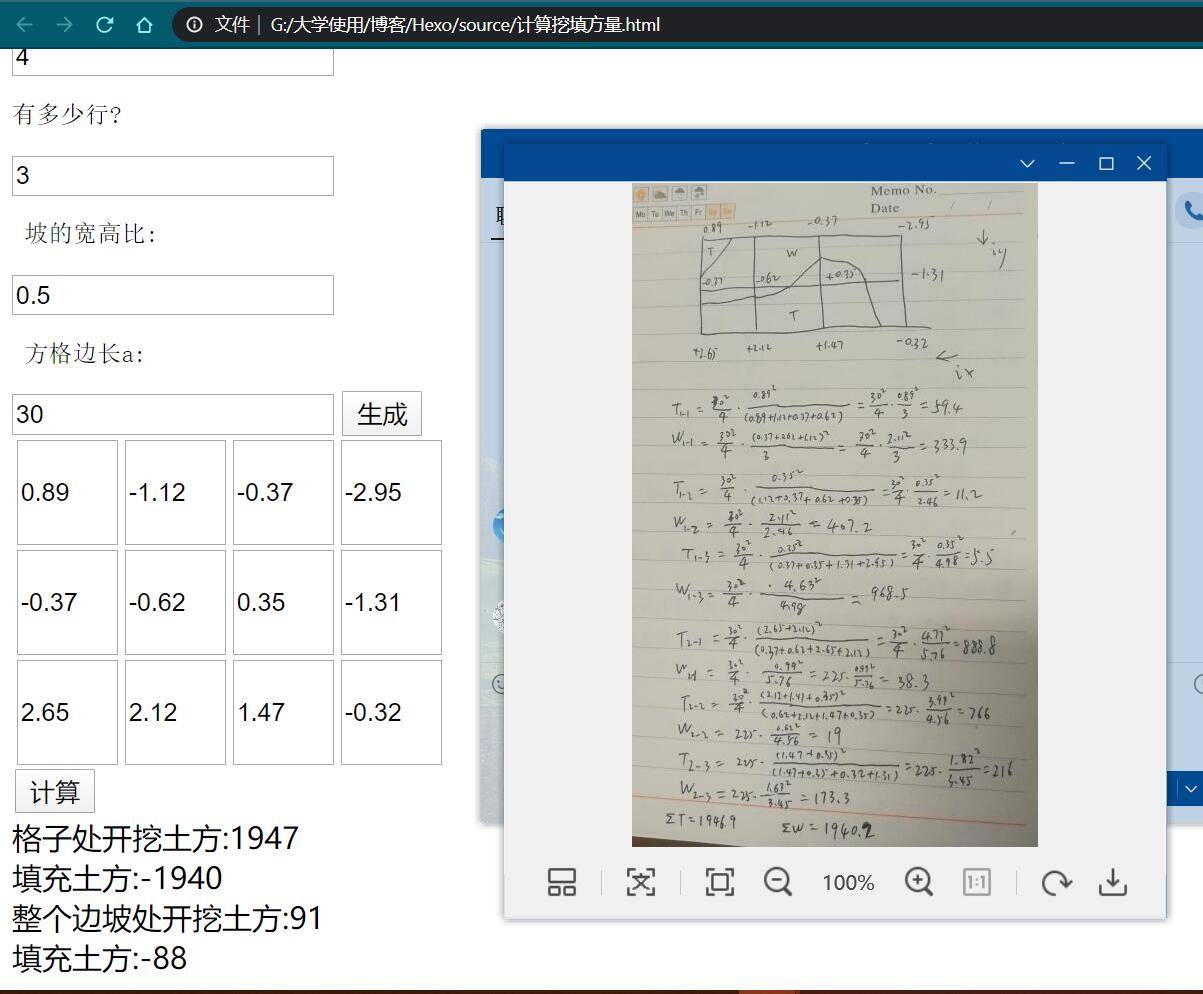 文件 | G:/大学使用/博客/Hexo/source/计算挖填方量.html
4
有多少行?
3
坡的宽高比:
0.5
方格边长a:
30 生成
0.89 -1.12 -0.37 -2.95
-0.37 -0.62 0.35 -1.31
2.65 2.12 1.47 -0.32
计算
格子处开挖土方:1947
填充土方:-1940
整个边坡处开挖土方:91
填充土方:-88
Memo No.
Mo Tu We Th Fr Sa Su
Date / /
0.89 -1.12 -0.37 -2.95
T W iy
-0.37 -0.62 +0.35 -1.31
T
+2.65 +2.12 +1.47 -0.32
ix
T1-1 = 30²/4 · 0.89²/(0.89+1.12+0.37+0.62) = 30²/4 · 0.89²/3 = 59.4
W1-1 = 30²/4 · (0.37+0.62+1.12)²/3 = 30²/4 · 2.11²/3 = 333.9
T1-2 = 30²/4 · 0.35²/(1.12+0.37+0.62+0.35) = 30²/4 · 0.35²/2.46 = 11.2
W1-2 = 30²/4 · 2.11²/2.46 = 407.2
T1-3 = 30²/4 · 0.35²/(0.37+0.35+1.31+2.95) = 30²/4 · 0.35²/4.98 = 5.5
W1-3 = 30²/4 · 4.63²/4.98 = 968.5
T2-1 = 30²/4 · (2.65+2.12)²/(0.37+0.62+2.65+2.12) = 30²/4 · 4.77²/5.76 = 888.8
30²/4 · 0.99²/5.76 = 225 · 0.99²/5.76 = 38.3
T2-2 = 30²/4 · (2.12+1.47+0.35)²/(0.62+2.12+1.47+0.35) = 225 · /4.56 = 766
W2-2 = 225 · 0.62²/4.56 = 19
T2-3 = 225 · (1.47+0.35)²/(1.47+0.35+0.32+1.31) = 225 · 1.82²/3.45 = 216
W2-3 = 225 · 1.63²/3.45 = 173.3
ΣT = 1946.9 ΣW = 1940.2
100% 1:1